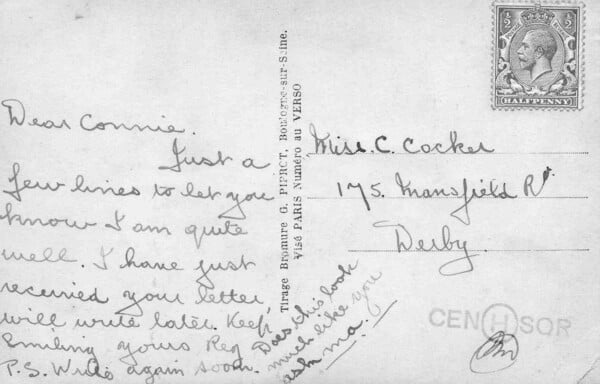 Dear Connie.
Just a
few lines to let you
know I am quite
well. I have just
received your letter,
will write later. Keep
Smiling yours Reg
P.S. Write again soon.
Does this look
much like you
ask ma.
Tirage Bromure G. PIPRCT, Boulogne-sur-Seine.
Visé PARIS Numéro au VERSO
½ ½
HALFPENNY
Miss. C. Cocker
175. Mansfield Rd.
Derby.
CENSOR
H